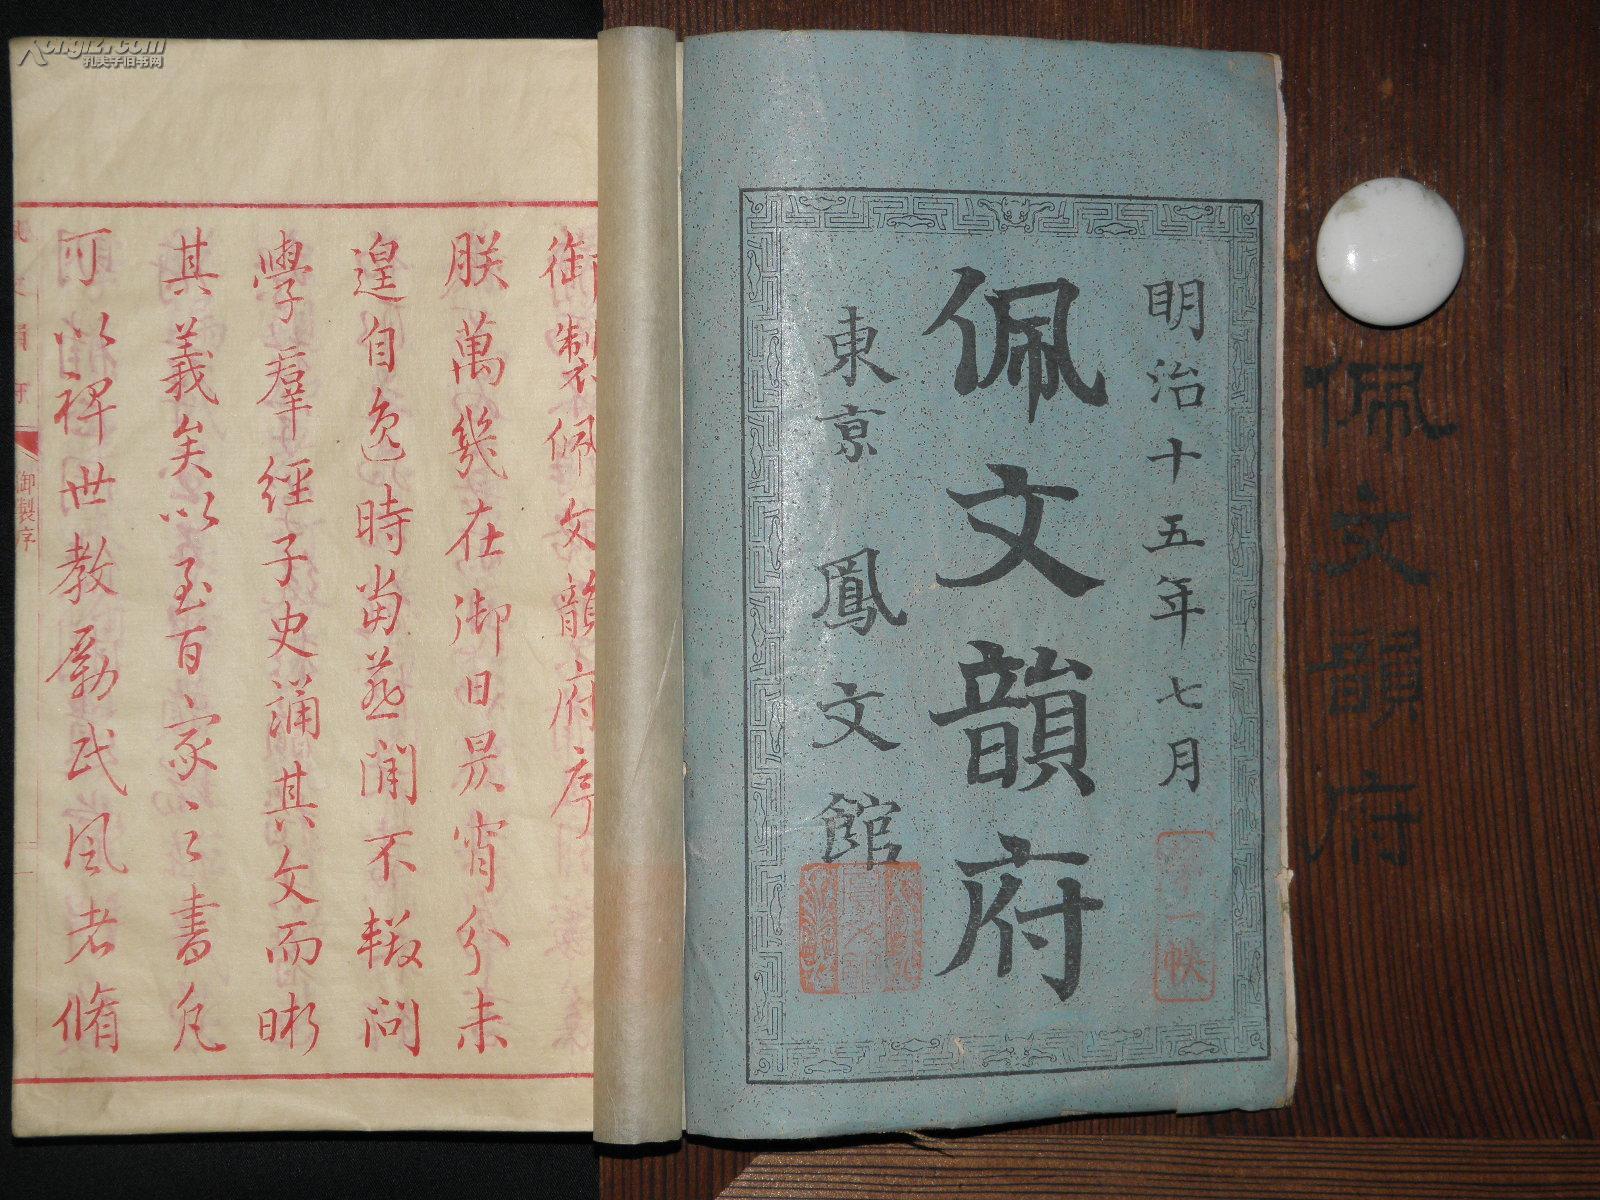 佩文韻府
明治十五年七月
佩文韻府
東京鳳文館
一帙
御製佩文韻府序
朕萬幾在御日昃宵分未
遑自逸時當燕閒不輟問
學羣經子史誦其文而晰
其義矣以至百家之書凡
可以裨世教勵民風者脩
御製序
孔夫子旧书网